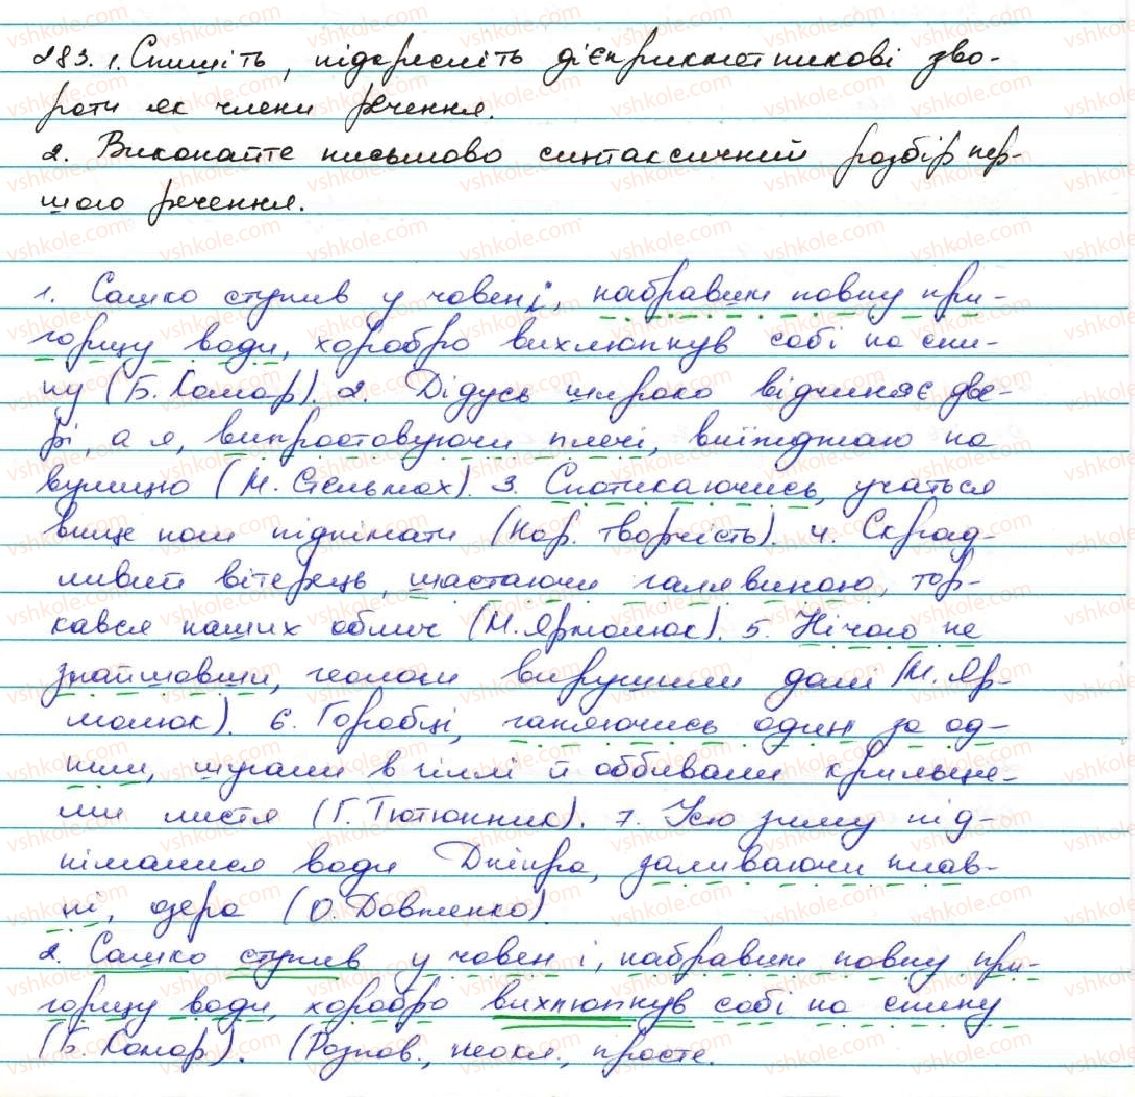 283. 1. Спишіть, підкресліть дієприкметникові зво-
роти як члени речення.
2. Виконайте письмово синтаксичний розбір пер-
шого речення.
1. Сашко ступив у човен і, набравши повну при-
горщу води, хоробро вихлюпнув собі на спи-
ну (Б. Комар). 2. Дідусь широко відчиняє две-
рі, а я, випростовуючи плечі, виїжджаю на
вулицю (М. Стельмах). 3. Спотикаючись, учаться
вище ноги піднімати (Нар. творчість). 4. Склад-
ливий вітерець, шастаючи галявиною, тор-
кався наших облич (М. Ярмолюк). 5. Нічого не
знайшовши, геологи вирушили далі (М. Яр-
молюк). 6. Горобці, ганяючись один за од-
ним, шугали в гіллі й оббивали крильця-
ми листя (Г. Тютюнник). 7. Усю зиму під-
німалися води Дніпра, заливаючи плав-
ні, озера (О. Довженко).
2. Сашко ступив у човен і, набравши повну при-
горщу води, хоробро вихлюпнув собі на спину
(Б. Комар). (Розпов., неокл., просте.